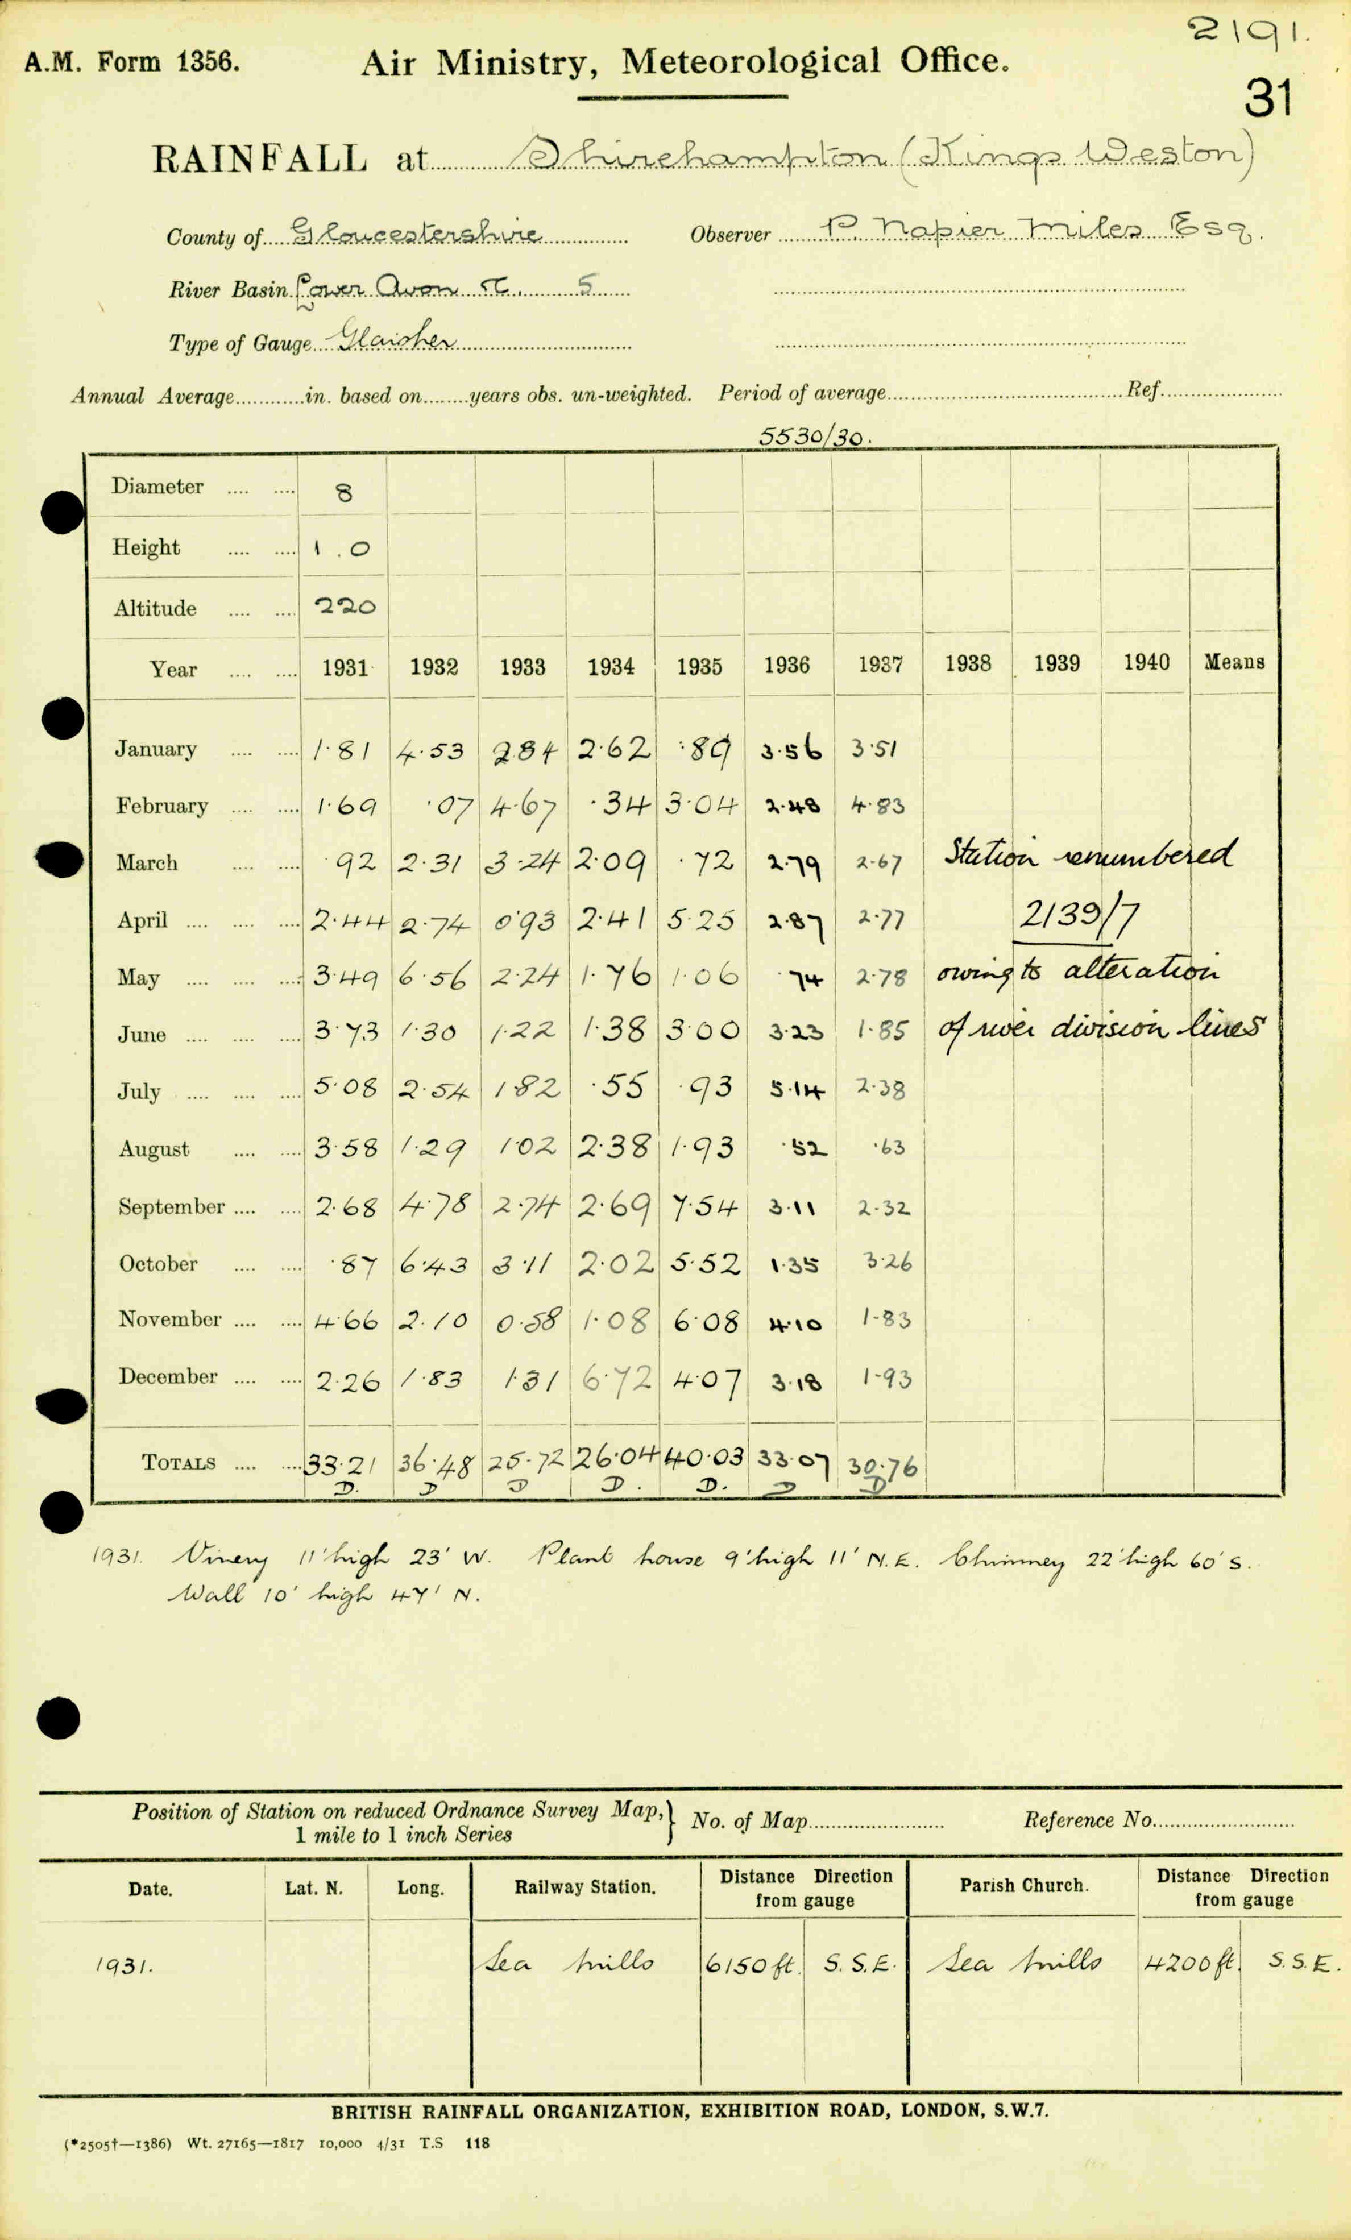 2191.
A.M. Form 1356. Air Ministry, Meteorological Office.
31
RAINFALL at Shirehampton (Kings Weston)
County of Gloucestershire Observer P. Napier Miles Esq.
River Basin Lower Avon 5
Type of Gauge Glaisher
Annual Average in. based on years obs. un-weighted. Period of average Ref.
5530/30.
Diameter 8
Height 1.0
Altitude 220
Year 1931 1932 1933 1934 1935 1936 1937 1938 1939 1940 Means
January 1.81 4.53 2.84 2.62 .89 3.56 3.51
February 1.69 .07 4.67 .34 3.04 2.48 4.83
March .92 2.31 3.24 2.09 .72 2.79 2.67 Station renumbered
April 2.44 2.74 0.93 2.41 5.25 2.87 2.77 2139/7
May 3.49 6.56 2.24 1.76 1.06 .74 2.78 owing to alteration
June 3.73 1.30 1.22 1.38 3.00 3.23 1.85 of river division lines
July 5.08 2.54 1.82 .55 .93 5.14 2.38
August 3.58 1.29 1.02 2.38 1.93 .52 .63
September 2.68 4.78 2.74 2.69 7.54 3.11 2.32
October .87 6.43 3.11 2.02 5.52 1.35 3.26
November 4.66 2.10 0.58 1.08 6.08 4.10 1.83
December 2.26 1.83 1.31 6.72 4.07 3.18 1.93
TOTALS 33.21 36.48 25.72 26.04 40.03 33.07 30.76
D. D D D. D. D D
1931. Vinery 11' high 23' W. Plant house 9' high 11' N.E. Chimney 22' high 60' S.
Wall 10' high 47' N.
Position of Station on reduced Ordnance Survey Map, } No. of Map Reference No.
1 mile to 1 inch Series
Date. Lat. N. Long. Railway Station. Distance Direction from gauge Parish Church. Distance Direction from gauge
1931. Sea Mills 6150 ft. S.S.E. Sea Mills 4200 ft. S.S.E.
BRITISH RAINFALL ORGANIZATION, EXHIBITION ROAD, LONDON, S.W.7.
(*2505†—1386) Wt. 27165—1817 10,000 4/31 T.S 118